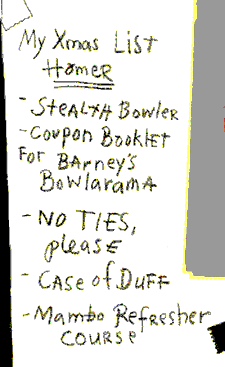 My Xmas List
Homer
- Stealth Bowler
- Coupon Booklet
For Barney's
Bowlarama
- No Ties,
please
- Case of Duff
- Mambo Refresher
Course